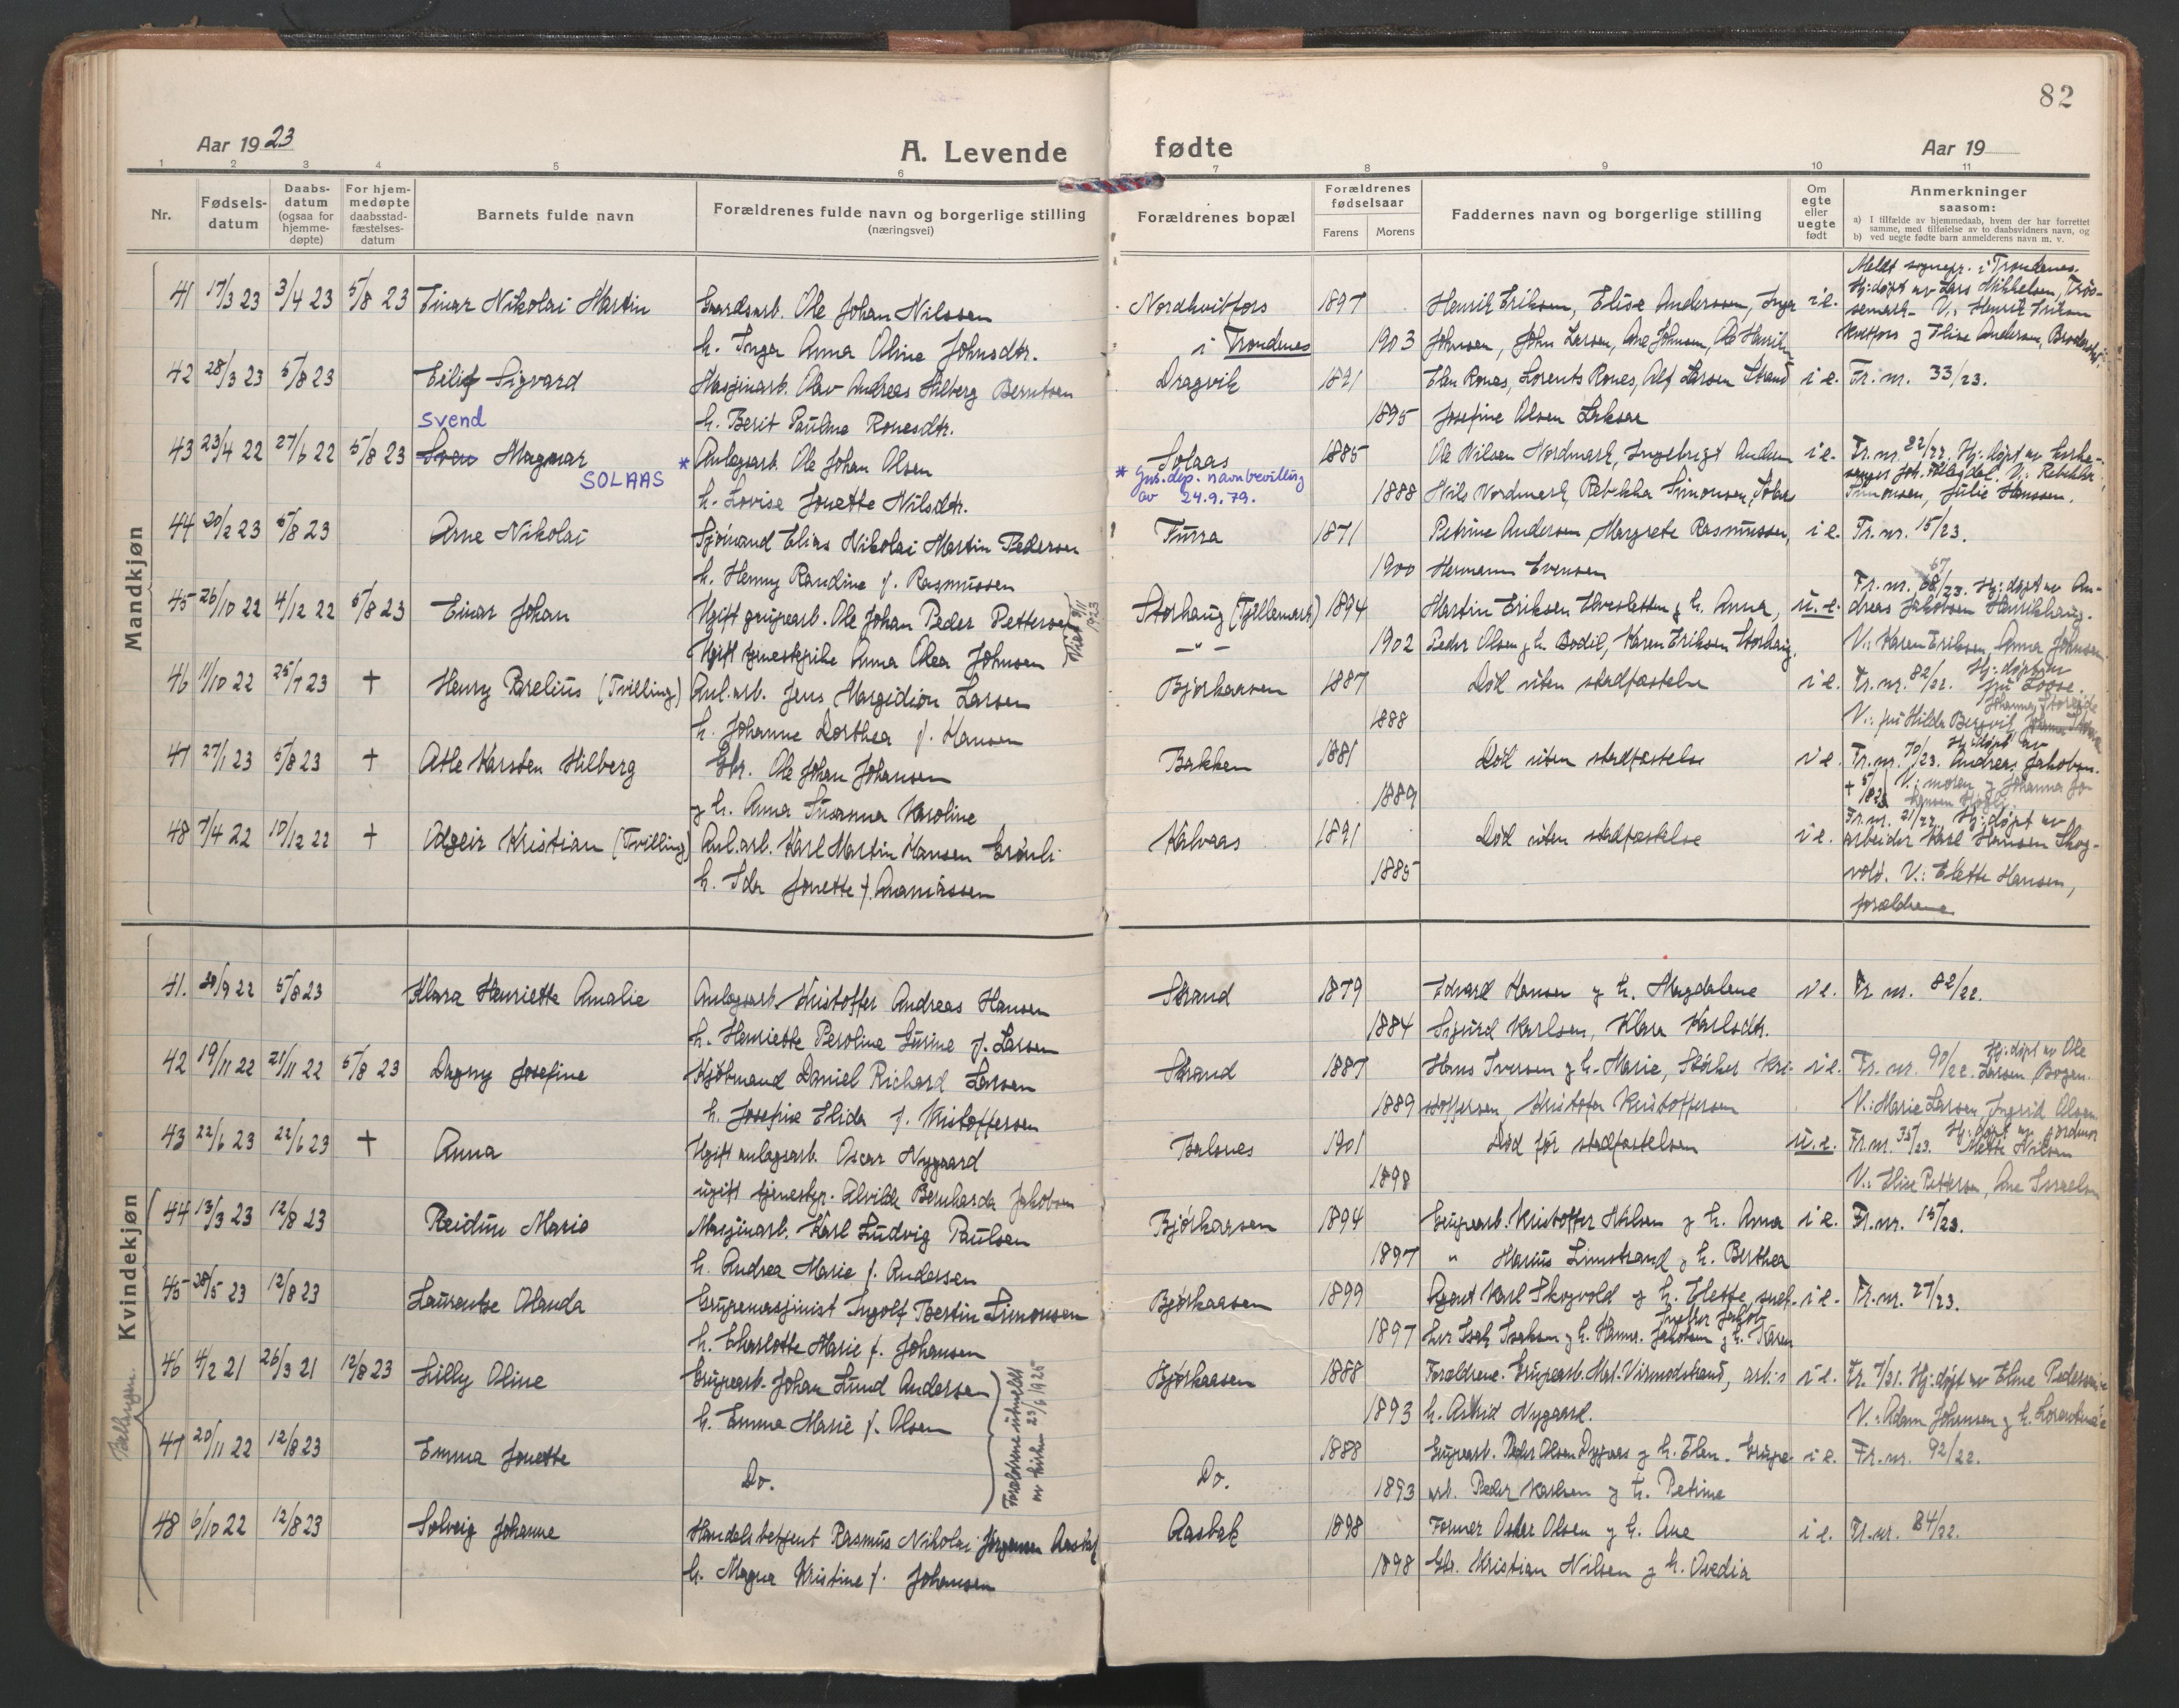 82
Aar 1923
A. Levende
fødte
Aar 19
1 2 3 4 5 6 7 8 9 10 11
Nr.
Fødsels-
datum
Daabs-
datum
(ogsaa for
hjemme-
døpte)
For hjem-
medøpte
daabsstad-
fæstelses-
datum
Barnets fulde navn
Forældrenes fulde navn og borgerlige stilling
(næringsvei)
Forældrenes bopæl
Forældrenes
fødselsaar
Farens Morens
Faddernes navn og borgerlige stilling
Om
egte
eller
uegte
født
Anmerkninger
saasom:
a) I tilfælde av hjemmedaab, hvem der har forrettet
samme, med tilføielse av to daabsvidners navn, og
b) ved uegte fødte barn anmelderens navn m. v.
Mandkjøn
41 17/3 23 3/4 23 5/8 23 Einar Nikolai Martin Gaardsarb. Ole Johan Nilssen Nordkvitfors 1897 Henrik Eriksen, Elise Anderssen, Inga i e. Meldt sognepr. i Trondenes.
Hj:døpt av Lars Mikkelsen,
V.: Henrik Eriksen
h. Inga Anna Oline Johnsdtr. i Trondenes 1903 Johnsen, John Larsen, Ane Johnsen, Kvitfors g Elise Andersen,
42 28/3 23 5/8 23 Eilif Sigvard Masjinarb. Olav Andreas Hilberg Berntsen Dragvik 1891 Elen Rones, Lorents Rones, Alf Larsen Strand i e. Fr. nr. 33/23.
h. Berit Pauline Ronesdtr. 1895 Josefine Olsen
Svend
43 23/4 22 27/6 22 5/8 23 Sven Magnar * Anlegsarb. Ole Johan Olsen Solaas 1885 Ole Nilsen Nordmark, Ingebrigt Andersen i e. Fr. nr. 22/22. Hj: døpt av
SOLAAS
* Jus. dep. navnbevilling
av 24.9.79.
h. Lovise Jonette Nilsdtr. 1888 Nils Nordmark, Rebekka Simonsen, V.: Rebekka
Simonsen, Julie Hanssen.
44 20/2 23 5/8 23 Arne Nikolai Sjömand Elias Nikolai Martin Pedersen Furra 1871 Petrine Andersen, Margrete Rasmussen, i e. Fr. nr. 15/23.
h. Henny Randine f. Rasmussen 1900 Hermann Evensen
45 26/10 22 4/12 22 5/8 23 Einar Johan Ugift grupearb. Ole Johan Peder Pettersen Storhaug 1894 Martin Eriksen g h. Anna, u. e. Fr. nr. 68/23. Hj: døpt av An-
dreas Jakobsen Henrikhaug.
67
Ugift tjenestepike Anna Olea Johnsen – " – 1902 Peder Olsen g h. Bodil, Karen Eriksen Storhaug. V.: Karen Eriksen, Anna Johnsen
Viet 1923
46 11/10 22 25/7 23 † Henry Parelius (Tvilling) Anl.arb. Jens Margidion Larsen Bjørkaasen 1887 Död uten stadfæstelse i e. Fr. nr. 82/22. Hj: døpt av
fru Loose.
h. Johanne Dorthea f. Hansen 1888 V.: fru Hilda Bergvik,
47 27/1 23 5/8 23 † Atle Karsten Hilberg Gbr. Ole Johan Johansen Bakken 1881 Död uten stadfæstelse i e. Fr. nr. 70/23. Hj. døpt av
Andreas Jakobsen.
g h. Anna Susanna Karoline 1889 V.: moren g Johanna Jo-
48 7/4 22 10/12 22 † Adgeir Kristian (Tvilling) Anl.arb. Karl Martin Hansen Grönli Kalvaas 1891 Död uten stadfæstelse i e. Fr. nr. 21/22. Hj: døpt av
arbeider Karl Hansen Skog-
h. Ida Jonette f. Ananiassen 1885 vold. V.: Elette Hansen,
forældrene
Kvindekjøn
Ballangen.
41. 30/9 22 5/8 23 Klara Henriette Amalie Anlegsarb. Kristoffer Andreas Hansen Strand 1879 Edvard Hansen g h. Magdalene i e. Fr nr. 82/22.
h. Henriette Peroline Gurine f. Larsen 1884 Sigurd Karlsen, Klara Karlsdtr.
42 19/11 22 21/11 22 5/8 23 Dagny Josefine Kjøbmand Daniel Richard Larsen Strand 1887 Hans Iversen g h. Marie, Kri- i e. Fr. nr. 90/22. Hj: døpt av Ole
Larsen Bogen.
h. Josefine Elida f. Kristoffersen 1889 stoffersen, Kristofer Kristoffersen V.: Marie Larsen, Ingrid Olsen
43 22/6 23 22/6 23 † Anna Ugift anlegsarb. Oscar Nygaard Balsnes 1901 Død før stadfæstelsen u. e. Fr. nr. 35/23. Hj: døpt av jordmor
Mette Nilsen
ugift tjenestep. Alvilde Bernharda Jakobsen 1898 V.: Elise Pettersen, Ane Israelsen
44 13/3 23 12/8 23 Reidun Marie Masjinarb. Karl Ludvig Paulsen Bjørkaasen 1894 Grupearb. Kristoffer Nilsen g h. Anna i e. Fr. nr. 15/23.
h. Andrea Marie f. Andersen 1897 " Marius Limstrand g h. Berthea
45 28/5 23 12/8 23 Laurentse Olanda Grupemasjinist Ingolf Bertin Simonsen Bjørkaasen 1899 Agent Karl Skogvold g h. Elette, i e. Fr. nr. 27/23.
h. Charlotte Marie f. Johansen 1897 Isak Isaksen g h. Hanna. Jakobsen g h. Karen
46 4/2 21 26/3 21 12/8 23 Lilly Oline Grupearb. Johan Lund Andersen Bjørkaasen 1888 Forældrene. Grupearb. i e. Fr. 7/21. Hj: døpt av Eline Pedersen
h. Emma Marie f. Olsen 1893 h. Astrid Nygaard. V.: Adam Johansen g h.
Forældrene utmeldt
av kirken 23/6 1925
47 20/11 22 12/8 23 Emma Jonette Do. Do. 1888 Grupearb. Peder Olsen g h. Elen. Grupe- i e. Fr. nr. 92/22.
1893 arb. Peder Karlsen g h. Petrine
48 6/10 22 12/8 23 Solveig Johanne Handelsbetjent Rasmus Nikolai Jörgensen Aasbak Aasbak 1898 Former Oskar Olsen g h. Ane i e. Fr. nr. 84/22.
h. Magna Kristine f. Johansen 1898 Gbr. Kristian Nilsen g h. Ovedia